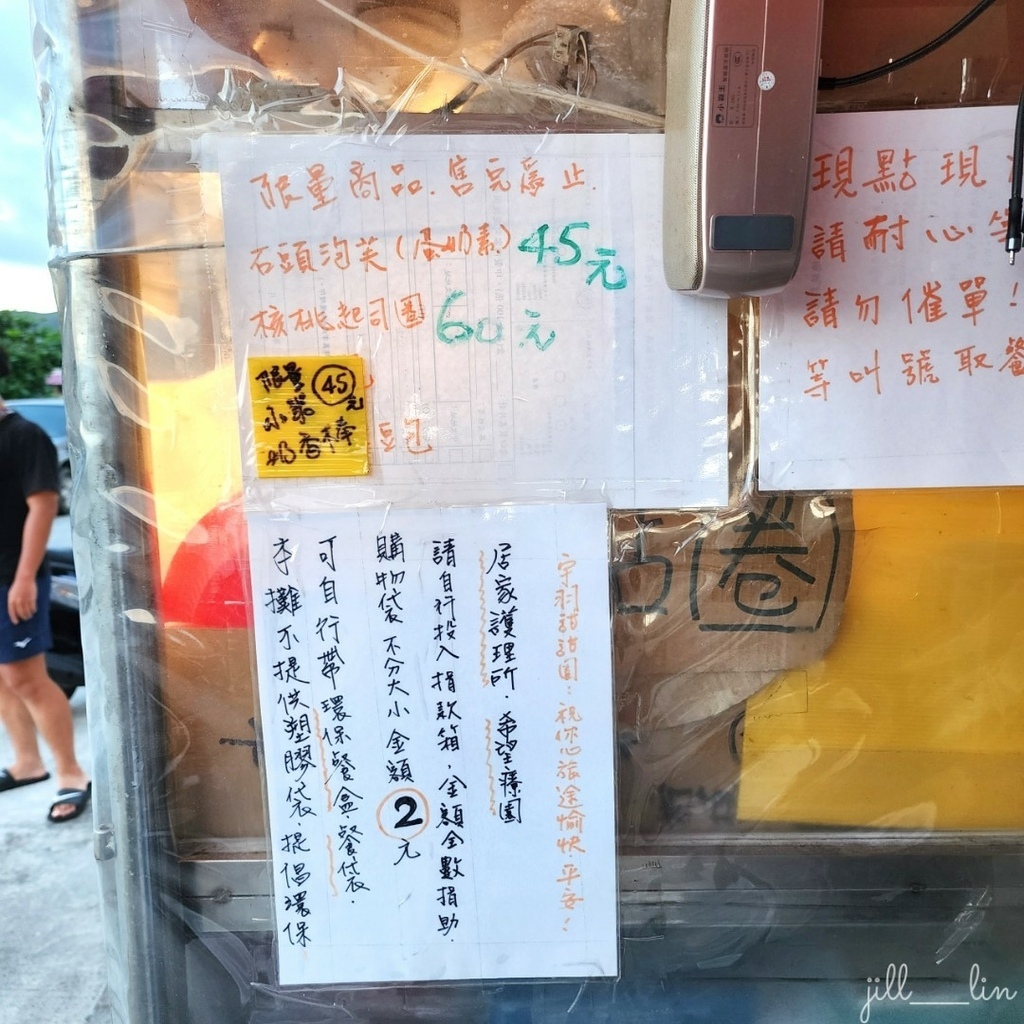 限量商品.售完為止.
石頭泡芙(蛋奶素)45元
核桃起司圈 60元
限量 45元
小農
奶香棒
現點現
請耐心等
請勿催單!
等叫號取餐
小霸王
圈
宇羽甜甜圈:祝你心旅途愉快.平安!
居家護理所.希望療園
請自行投入捐款箱,金額全數捐助.
購物袋不分大小金額2元
可自行帶環保餐盒.餐袋.
本攤不提供塑膠袋.提倡環保
jill___lin